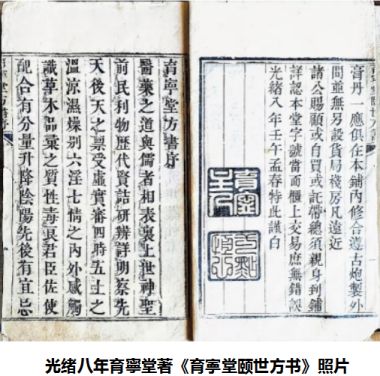 育寧堂頤世方書
膏丹一應俱在本鋪內修合遵古炮製外
間並無另設貨局棧房凡遠近
諸公賜顧或自買或託帶總須親身到鋪
詳認本堂字號當面櫃上交易庶無錯誤
光緒八年壬午孟春特此謹白
育寧堂方書序
醫藥之道與儒者相表裏上世神聖
前民利物歷代賢喆研辨詳明察先
天後天之稟受虛實審四時五土之
溫涼濕燥别六淫七情之內外感觸
識草木品彙之質性毒良君臣佐使
配合有分量升降陰陽先後有宜忌
光绪八年育寧堂著《育寧堂颐世方书》照片